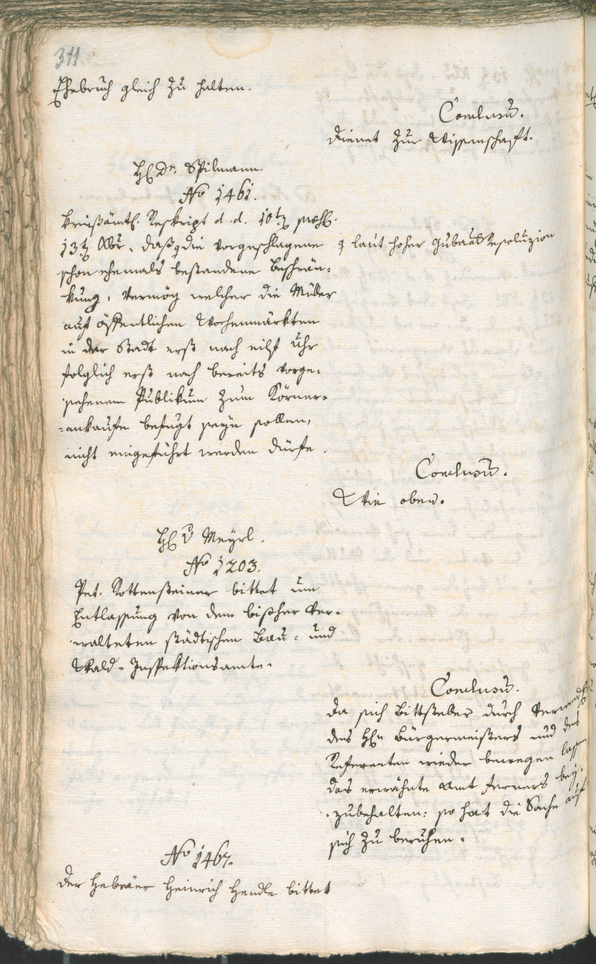 311.
Ehebruch gleich zu halten.
Conclusum.
Dienet zur Wissenschaft.
H. Dr. Spilmann.
No 1461.
Kreisämtl. Reskript d. d. 10t praes.
13t daß die vorgeschlagene
laut hoher Resoluzion
schon ehemals bestandene Beschrän-
kung, vermög welcher die Müller
auf öffentlichen Wochenmärkten
in der Stadt erst nach eilf Uhr
folglich erst nach bereits verse-
henem Publikum zum Körner-
ankaufe befugt seyn sollen,
nicht eingeführt werden dürfe.
Conclusum.
Wie oben.
H. v Meyrl.
No 1203.
Pet. Rottensteiner bittet um
Entlassung von dem bisher ver-
walteten städtischen Bau- und
Wald-Inspektionsamte.
Conclusum.
Da sich Bittsteller durch
des Hn Bürgermeisters und des
Referenten wieder bewegen lassen
das erwähnte Amt ferners bey-
zubehalten: so hat die Sache auf
sich zu beruhen.
No 1467.
Der Hebräer Heinrich Hendle bittet